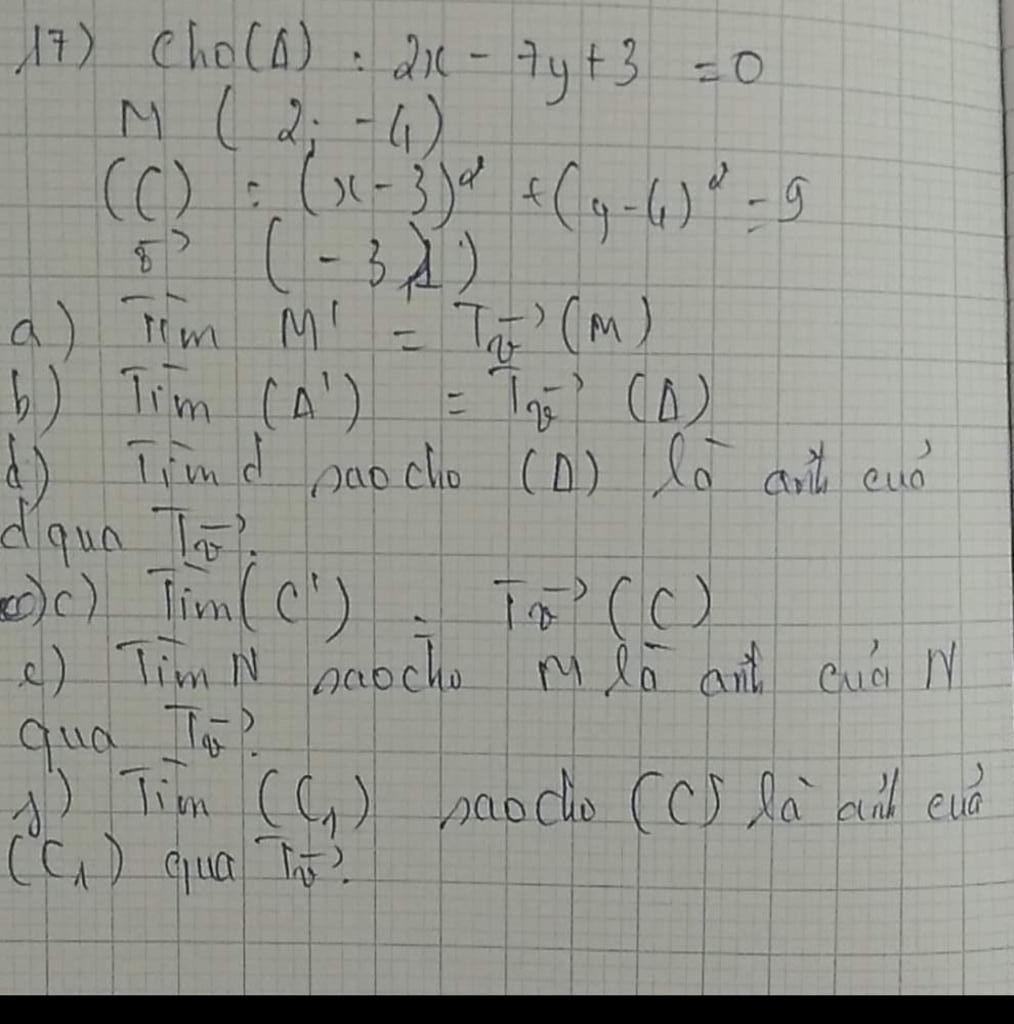 17) Cho (Δ) : 2x - 7y + 3 = 0
M ( 2; -4)
(C) : (x - 3)² + (y - 4)² = 9
v⃗ ( - 3; 1 )
a) Tìm M' = Tv⃗ (M)
b) Tìm (Δ') = Tv⃗ (Δ)
d) Tìm d sao cho (Δ) là ảnh của
d qua Tv⃗.
c) Tìm (C') = Tv⃗ (C)
e) Tìm N sao cho M là ảnh của N
qua Tv⃗.
f) Tìm (C₁) sao cho (C) là ảnh của
(C₁) qua Tv⃗.